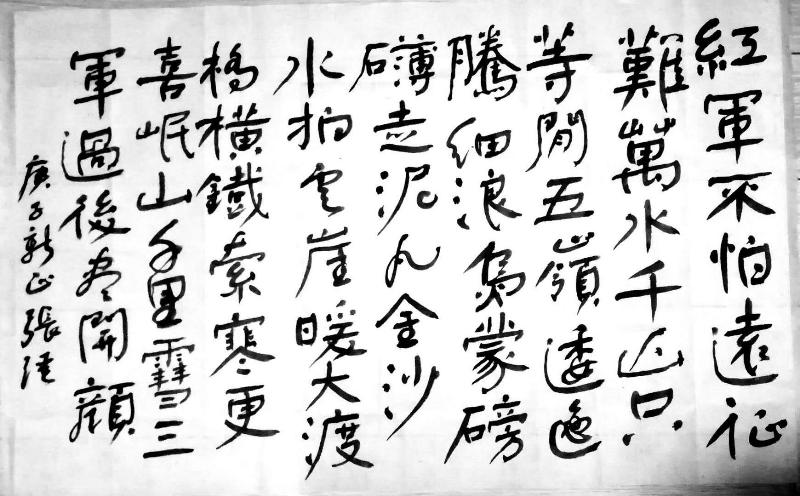 紅軍不怕遠征
難萬水千山只
等閒五嶺逶迤
騰細浪烏蒙磅
礴走泥丸金沙
水拍云崖暖大渡
橋橫鐵索寒更
喜岷山千里雪三
軍過後盡開顏
庚子新正張